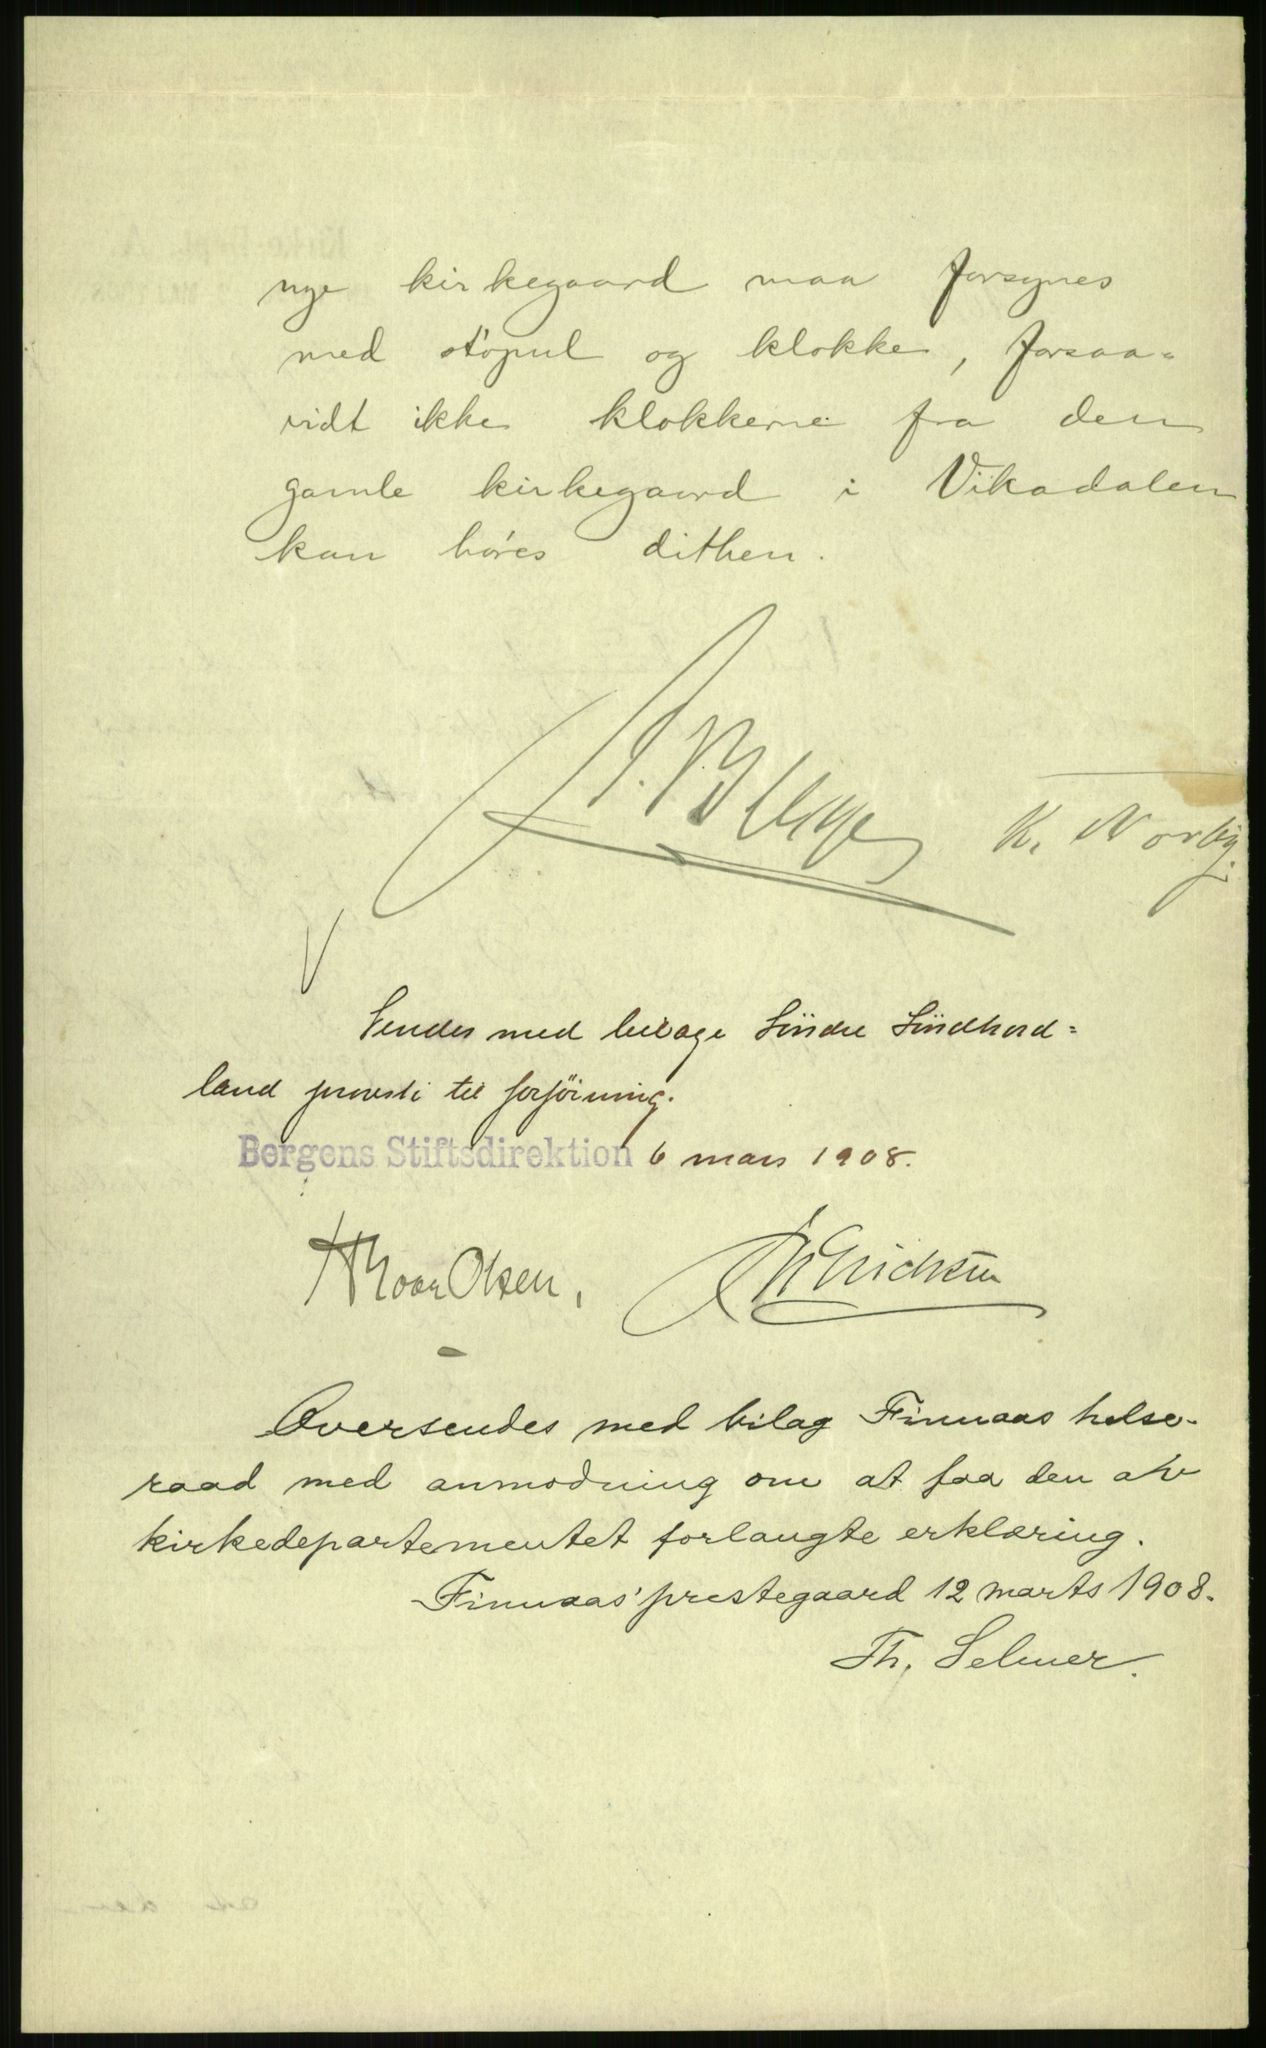 nye kirkegaard maa forsynes
med støpul og klokke, forsaa-
vidt ikke klokkerne fra den
gamle kirkegaard i Vikadalen
kan høres dithen.
K. Norby.
Sendes med bilage Söndre Söndhord=
land provsti til forföining.
Bergens Stiftsdirektion 6 mars 1908.
Roar Olsen, Erichsen
Oversendes med bilag Finnaas helse-
raad med anmodning om at faa den av
kirkedepartementet forlangte erklæring.
Finnaas' prestegaard 12 marts 1908.
Th. Selmer.